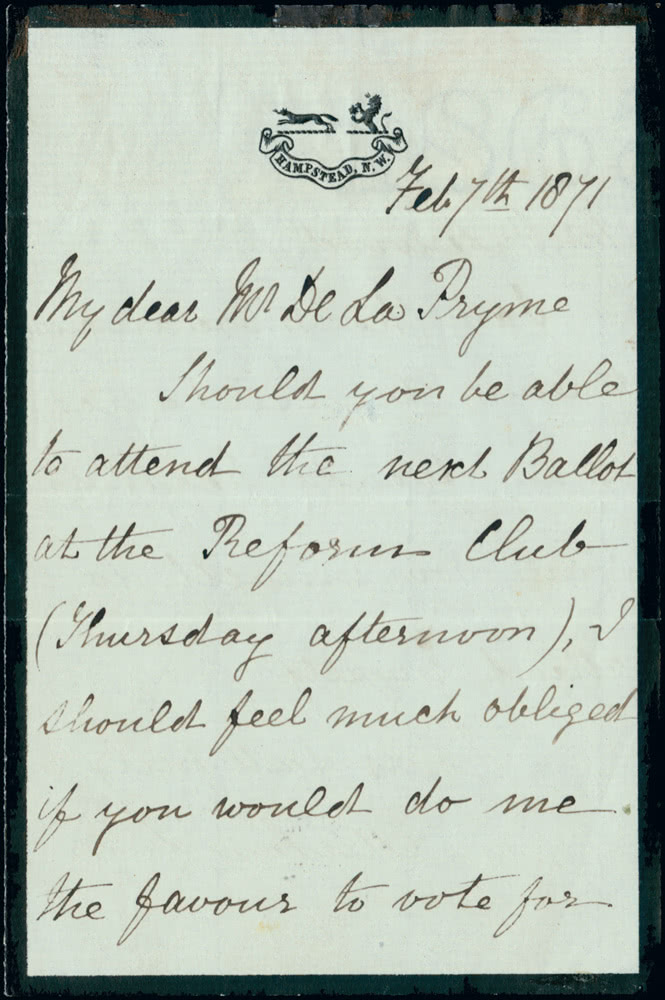 HAMPSTEAD, N.W.
Feb 7th 1871
My dear Mr De La Pryme
Should you be able
to attend the next Ballot
at the Reform Club
(Thursday afternoon), I
should feel much obliged
if you would do me
the favour to vote for